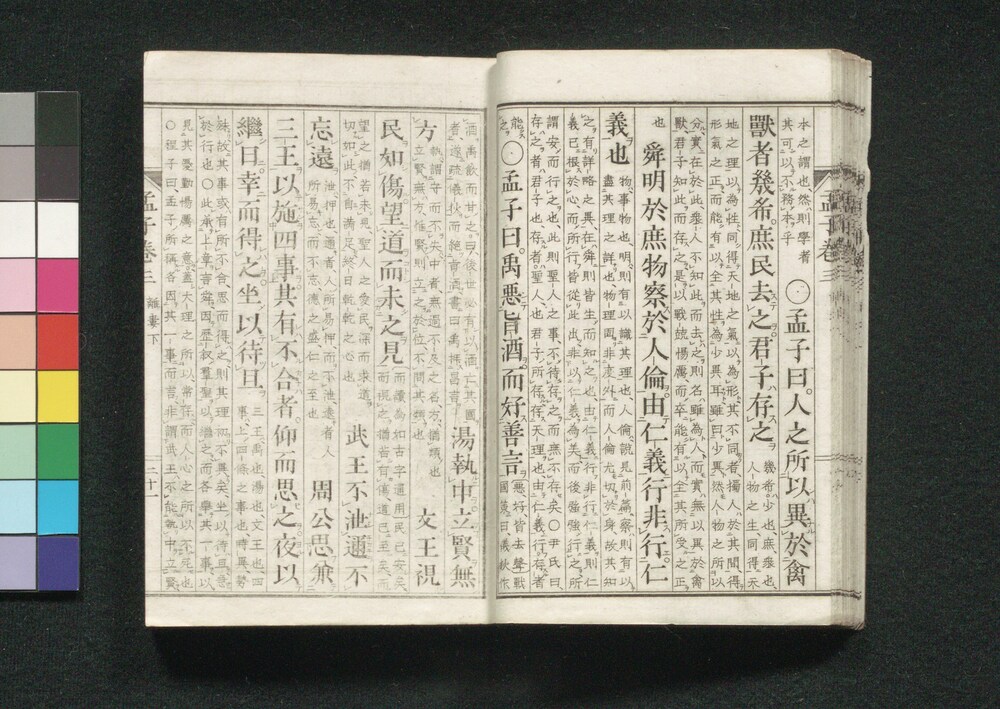 本之謂也然則學者
其可以不務本乎
○孟子曰人之所以異於禽
獸者幾希庶民去之君子存之
幾希少也庶衆也
人物之生同得天
地之理以爲性同得天地之氣以爲形其不同者獨人於其間得
形氣之正而能有以全其性爲少異耳雖曰少異然人物之所以
分實在於此衆人不知此而去之則名雖爲人而實無以異於禽
獸君子知此而存之是以戰兢惕厲而卒能有以全其所受之正
也
舜明於庶物察於人倫由仁義行非行仁
義也
物事物也明則有以識其理也人倫說見前篇察則有以
盡其理之詳也物理固非度外而人倫尤切於身故其知
之有詳略之異在舜則皆生而知之也由仁義行非行仁義則仁
義已根於心而所行皆從此出非以仁義爲美而後強行之所
謂安而行之也此則聖人之事不待存之而無不存矣○尹氏曰
存之者君子也存者聖人也君子所存存天理也由仁義行存者
能之
○孟子曰禹惡旨酒而好善言
惡好皆去聲戰
國策曰儀狄作
酒禹飮而甘之曰後世必有以酒亡其國
者遂疏儀狄而絕旨酒書曰禹拜昌言
湯執中立賢無
方
執謂守而不失中者無過不及之名方猶類也
立賢無方惟賢則立之於位不問其類也
文王視
民如傷望道而未之見
而讀爲如古字通用民已安矣
而視之猶若有傷道已至矣而
望之猶若未見聖人之愛民深而求道
切如此不自滿足終日乾乾之心也
武王不泄邇不
忘遠
泄狎也邇者人所易狎而不泄遠者人
所易忘而不忘德之盛仁之至也
周公思兼
三王以施四事其有不合者仰而思之夜以
繼日幸而得之坐以待旦
三王禹也湯也文武也四
事上四條之事也時異勢
殊故其事或有所不合思而得之則其理初不異矣坐以待旦急
於行也○此承上章言舜因歷敘羣聖以繼之而各舉其一事以
見其憂勤惕厲之意蓋天理之所以常存而人心之所以不死也
○程子曰孟子所稱各因其一事而言非謂武王不能執中立賢
孟子卷三
離婁下
二十一
孟子卷三